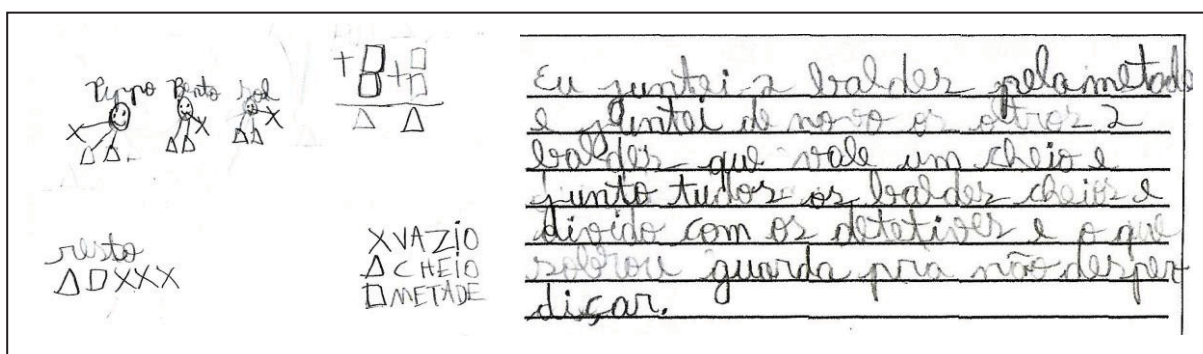 Pingo Bento Sol
X X X
Δ Δ Δ Δ Δ Δ
+ +
Δ Δ
resto
Δ D X X X
X VAZIO
Δ CHEIO
□ METADE
Eu juntei 2 baldes pela metade
e juntei de novo os otros 2
baldes que vale um cheio e
junto tudos os baldes cheios e
divido com os detetives e o que
sobrou guarda pra não desper
diçar.